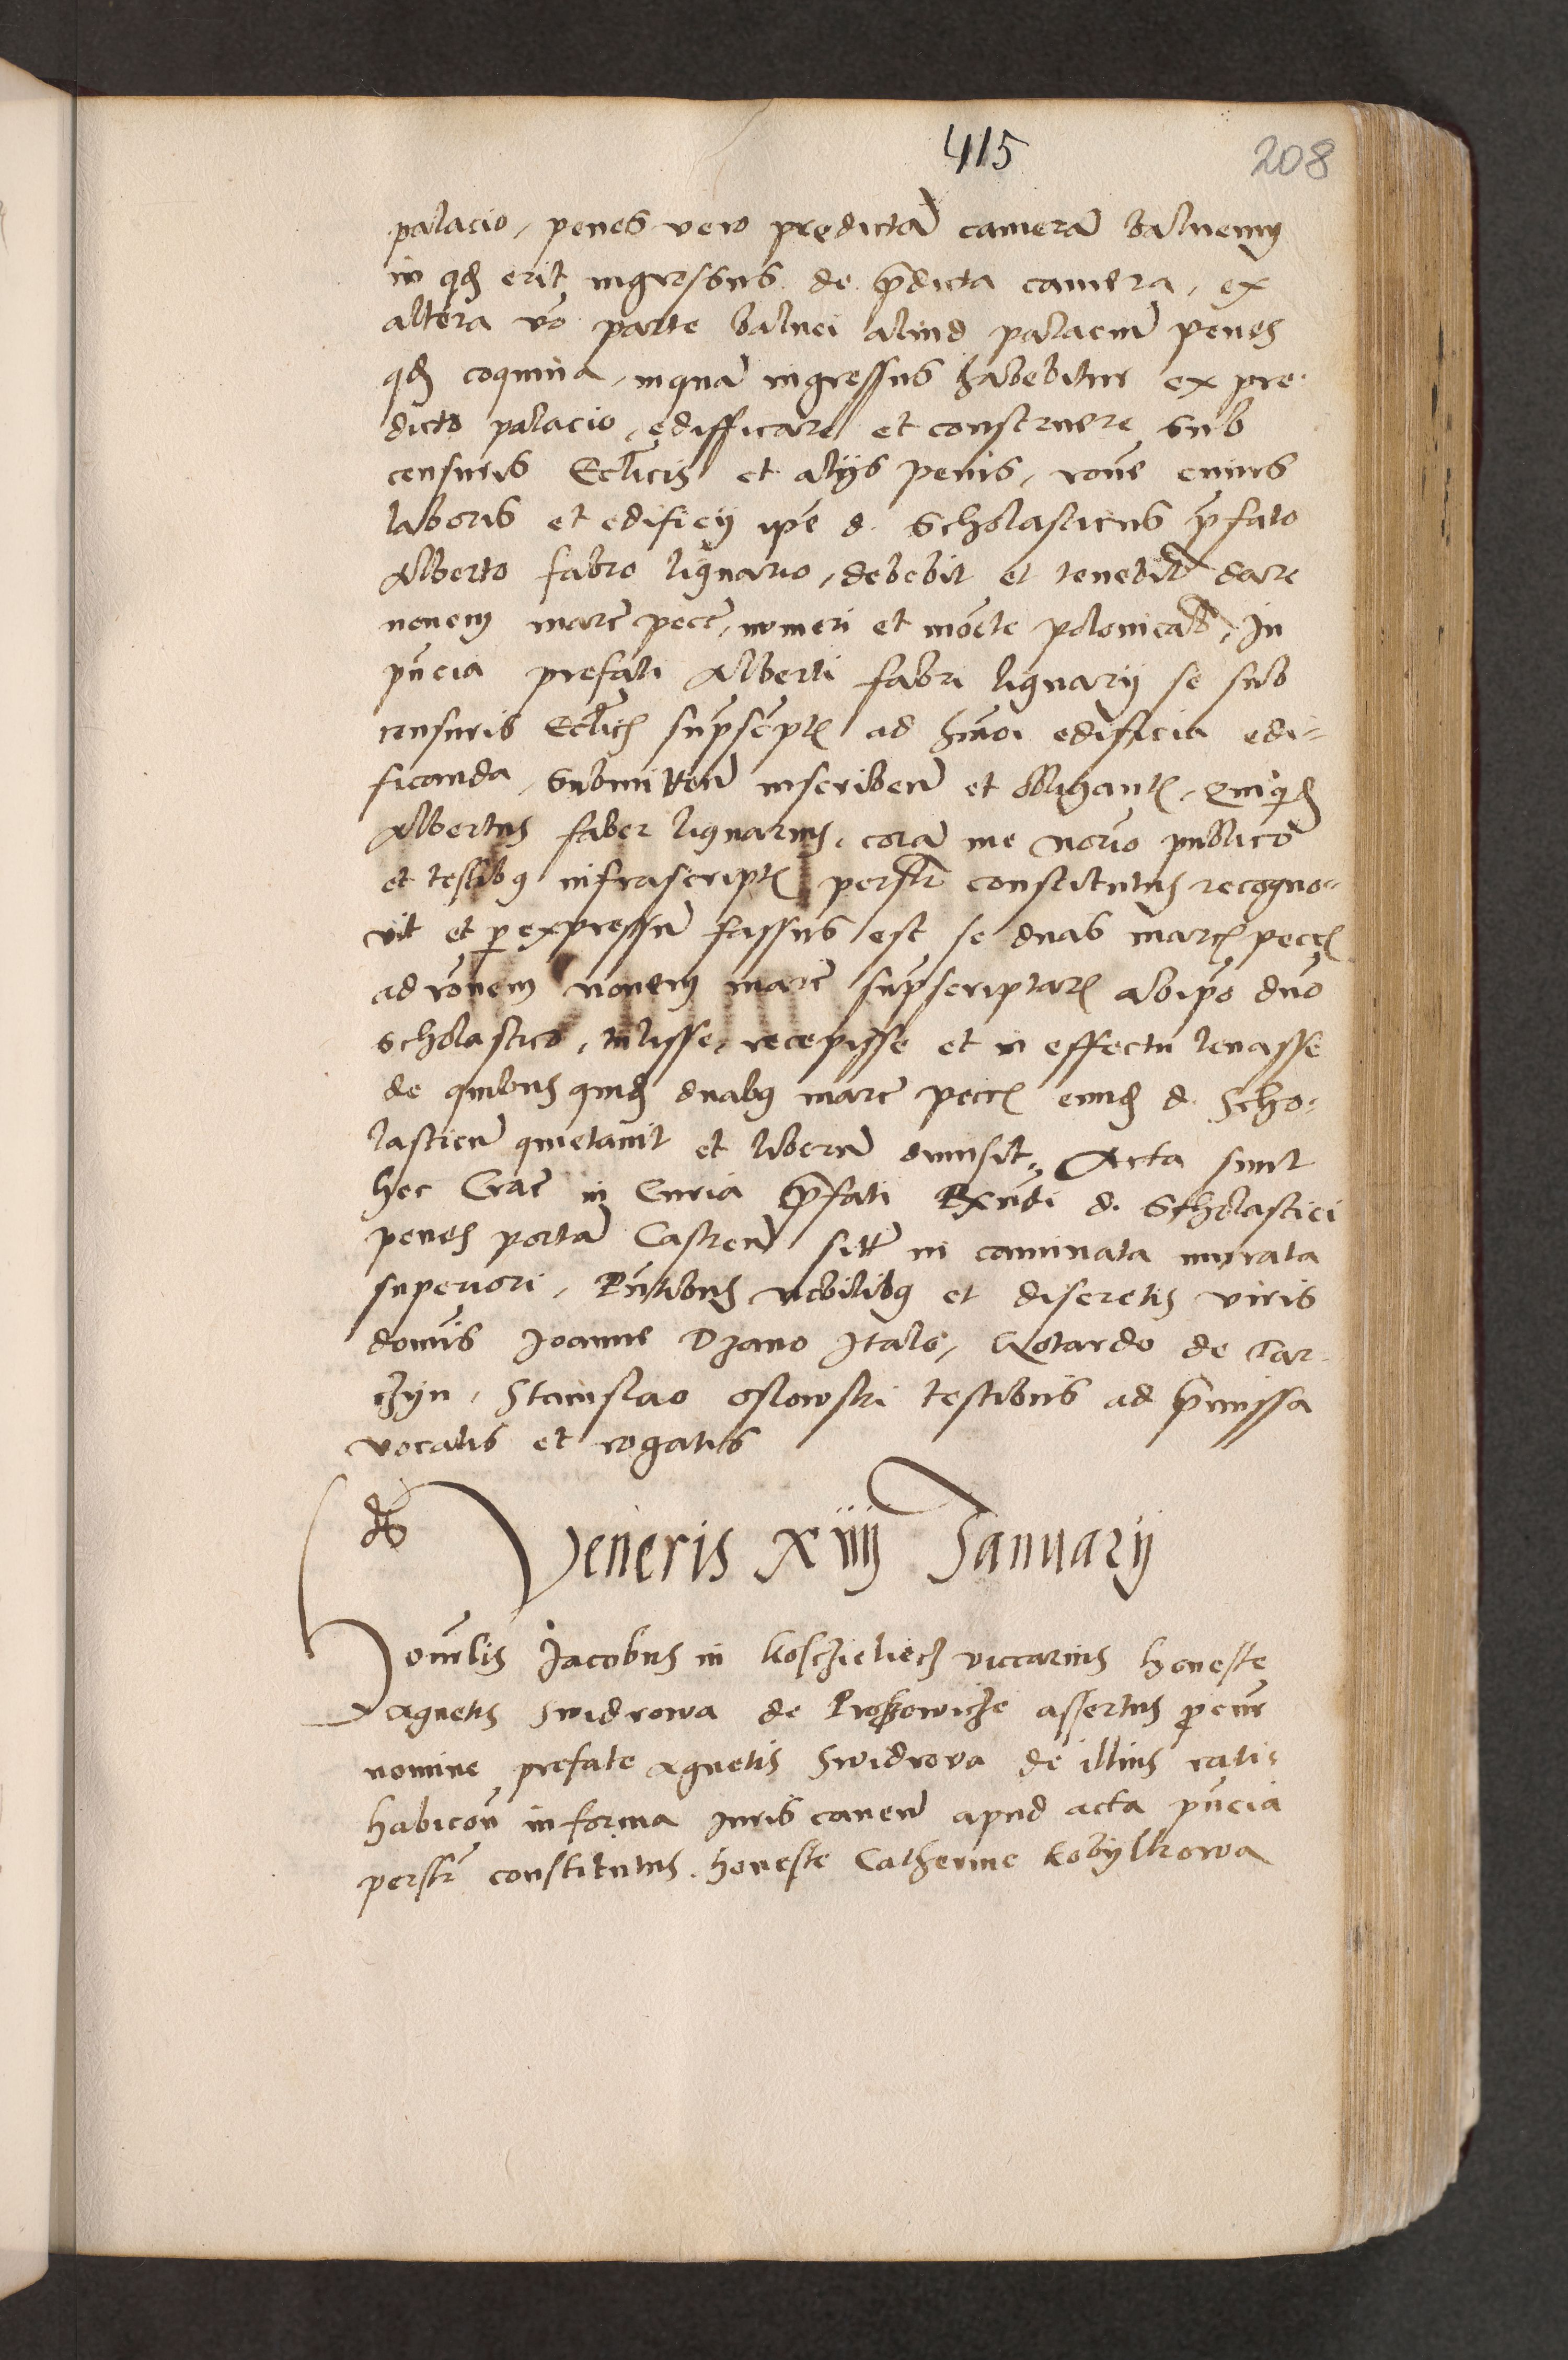 415
208
palacio, penes vero predictā camerā balneum
in qđ erit ingressus de p̄dicta camera, ex
altera vō parte balnei aliud palaciū penes
qđ coquina, in quā ingressus habebitur ex pre-
dicto palacio, edifficare et construere sub
censuris Ecc̄licis et alijs penis, rōne cuius
laboris et edificij ip̄e d. Scholasticus p̄fato
Alberto fabro lignario, debebit et tenebitʳ dare
novem marc̄ pecc̄, numeri et mōete polonicalis, In
pn̄cia prefati Alberti fabri lignarij se sub
censuris Ecc̄licis sup̄scptis ad hm̄oi edificia edi-
ficanda, submitteñ inscribeñ et obligantis, Quiquid
Albertus faber lignarius, corā me nor̄io publico
et testibus infrascriptis perslr̄ constitutus recogno-
vit et p expressū fassus est se duas marcs peccs
ad rōnem novem marc̄ sup̄scriptarz ab ip̄o dn̄o
Scholastico, tulisse, recepisse et in effectu levasse
de quibus quidz duabus marc̄ peccs eundz d. Scho-
lasticū quietavit et liberū dimisit, Acta sunt
hec Crac̄ in Curia p̄fati Rx̄ndi d. Scholastici
penes portā Castreñ sitt̄ in caminata murata
superiori, Pn̄tibus nobilibus et discretis viris
domīs Joanne Dzano Italo, Gotardo de Tar-
czyn, Stanislao Oslowski testibus ad p̄missa
vocatis et rogatis
Veneris xiiij Januarij
Honor̄lis Jacobus in Kosczieliecz viccarius honeste
Agnetis Swidrowa de Proszowicze assertus p̄cur̄
nomine prefate Agnetis Swidrova de illius rati-
habicōn in forma iuris caveñ apud acta pn̄cia
perslr̄ constitutus. honeste Catherine Kobylkowa